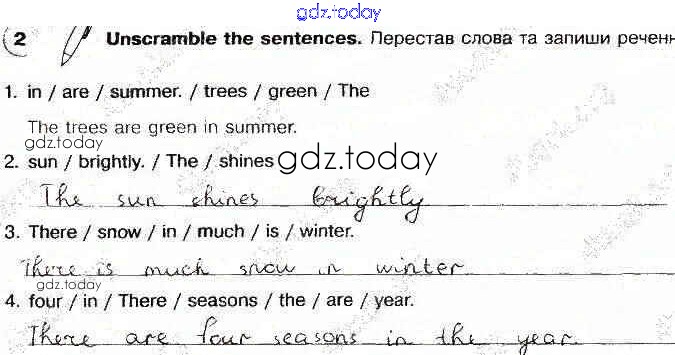 gdz.today
2 Unscramble the sentences. Перестав слова та запиши речен
1. in / are / summer. / trees / green / The
The trees are green in summer.
gdz.today
2. sun / brightly. / The / shines gdz.today
The sun shines brightly
3. There / snow / in / much / is / winter.
There is much snow in winter
gdz.today
4. four / in / There / seasons / the / are / year.
There are four seasons in the year.